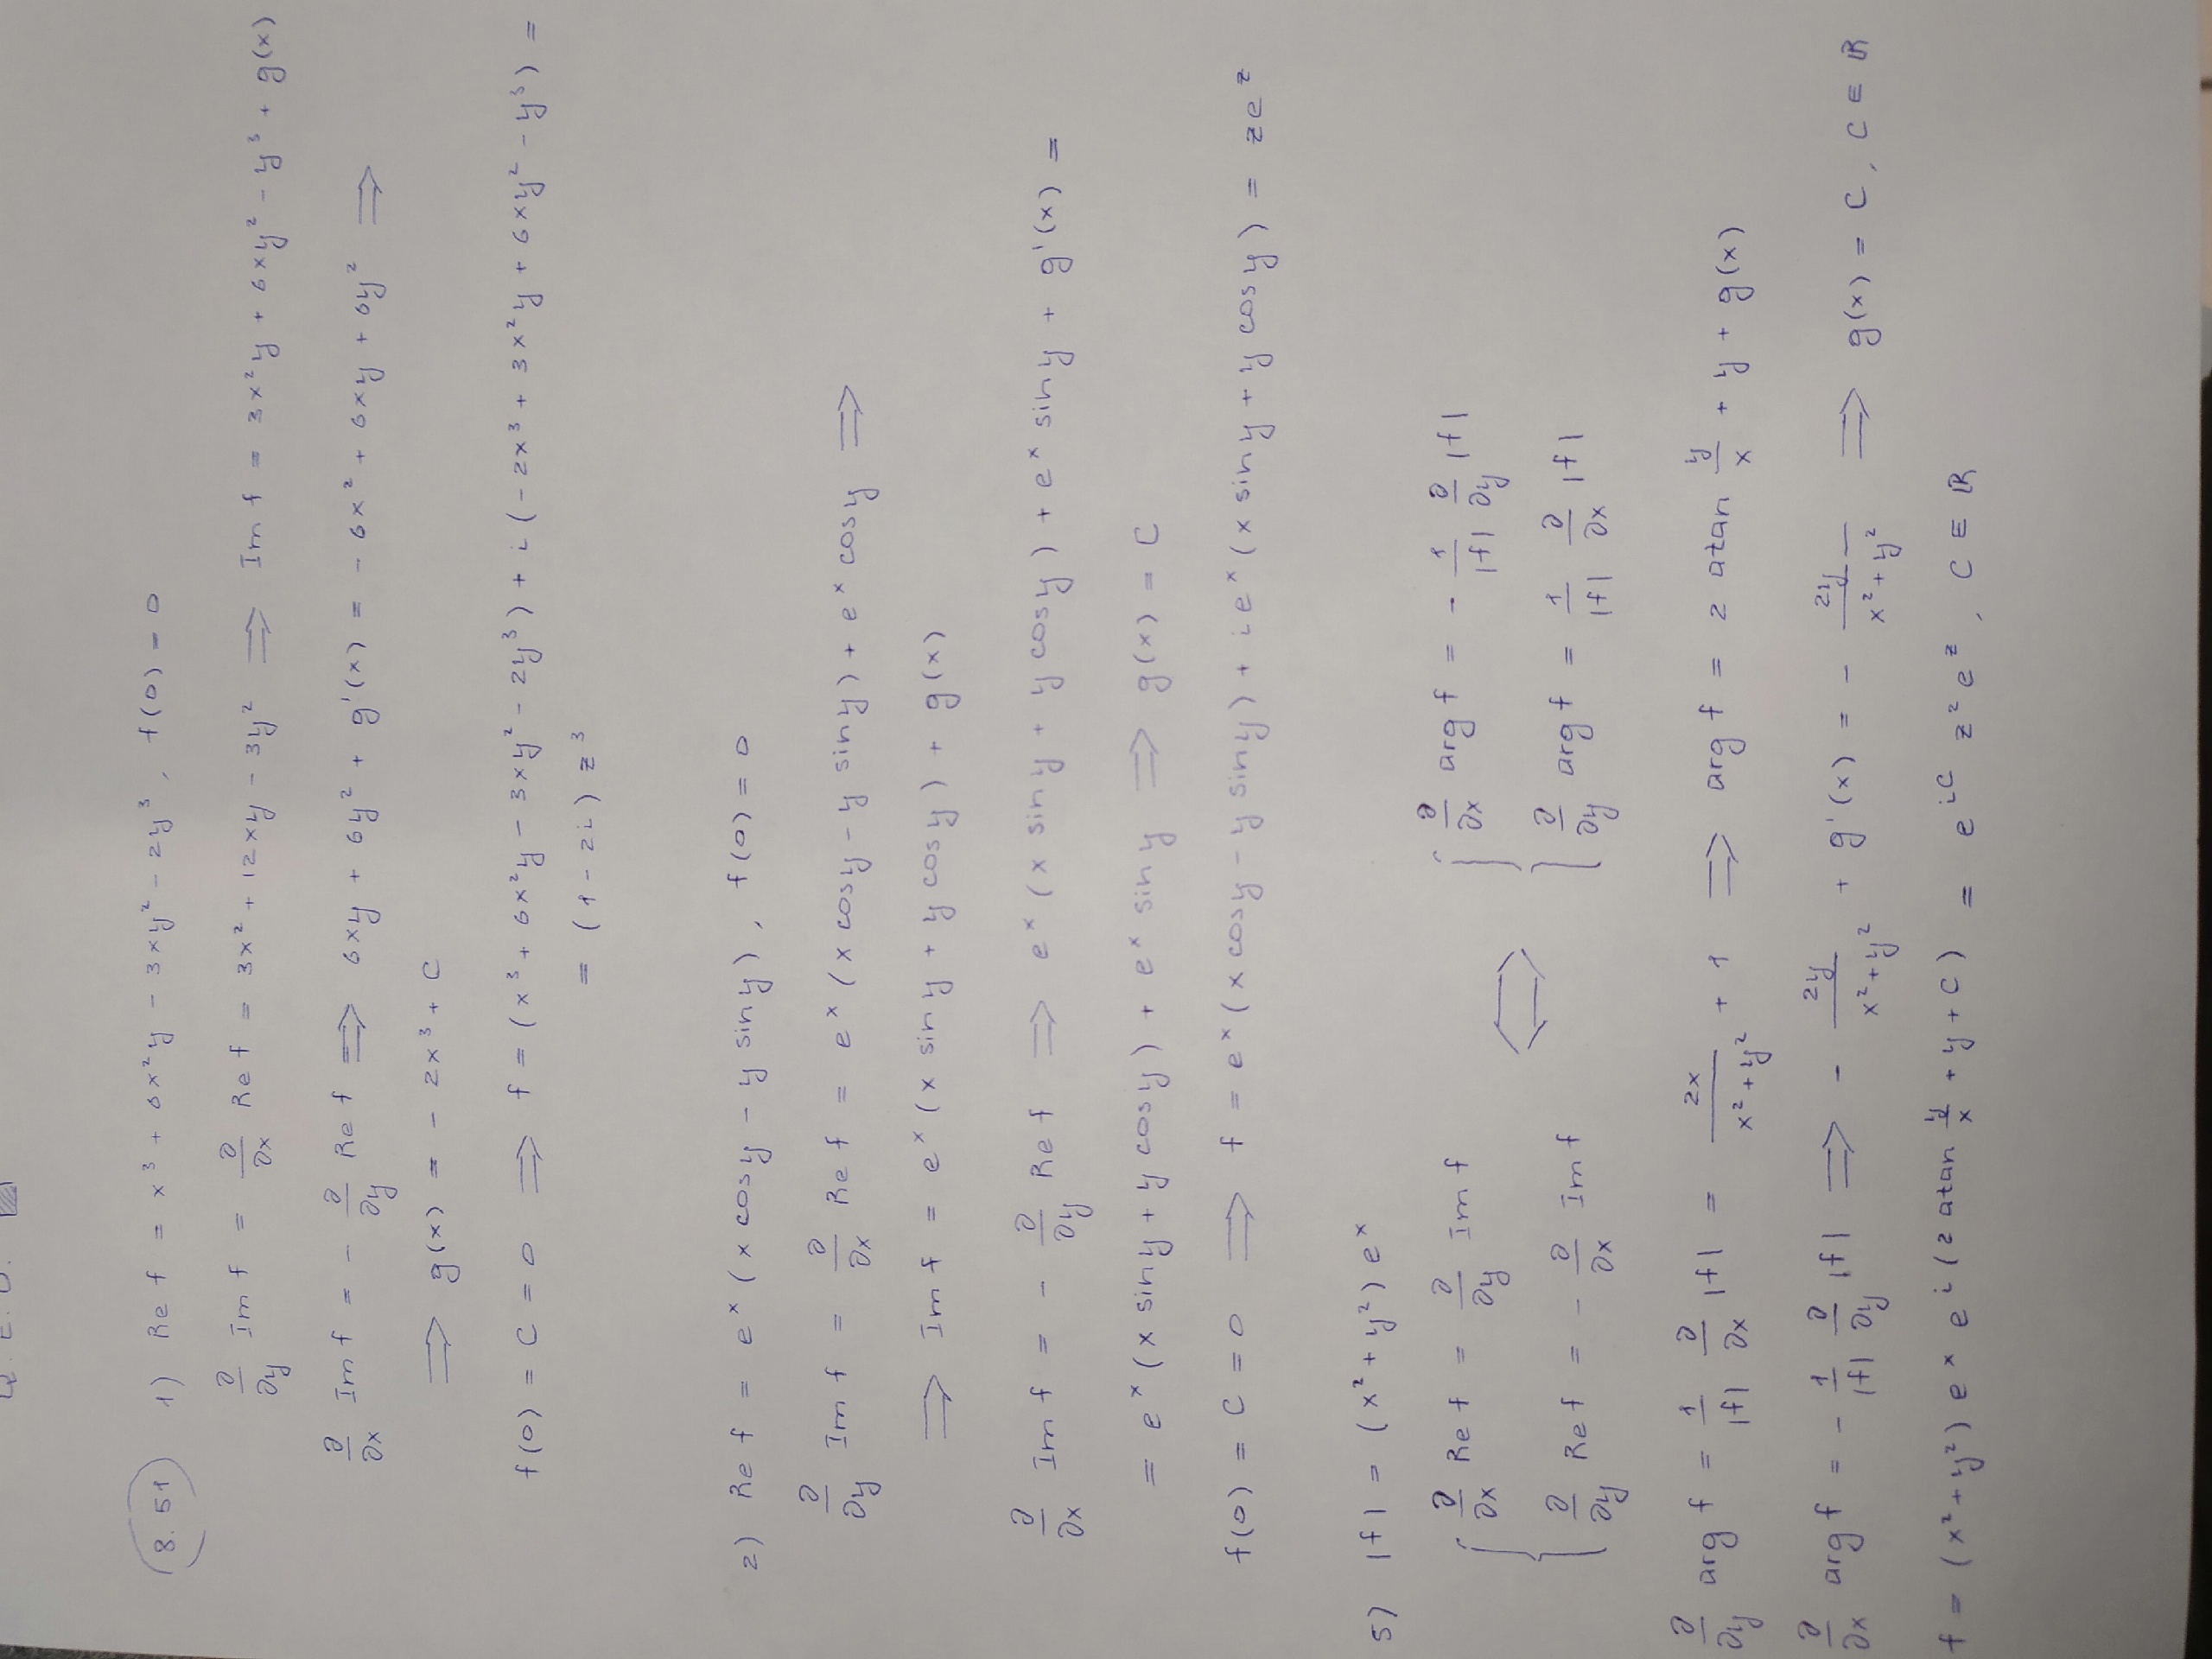 Q. E. D. ▨
8.51 1) Re f = x³ + 6x²y - 3xy² - 2y³, f(0) = 0
∂/∂y Im f = ∂/∂x Re f = 3x² + 12xy - 3y² ⟹ Im f = 3x²y + 6xy² - y³ + g(x)
∂/∂x Im f = - ∂/∂y Re f ⟹ 6xy + 6y² + g'(x) = - 6x² + 6xy + 6y² ⟹
⟹ g(x) = - 2x³ + C
f(0) = C = 0 ⟹ f = (x³ + 6x²y - 3xy² - 2y³) + i(-2x³ + 3x²y + 6xy² - y³) =
= (1 - 2i) z³
2) Re f = eˣ(x cosy - y siny), f(0) = 0
∂/∂y Im f = ∂/∂x Re f = eˣ(x cosy - y siny) + eˣ cosy ⟹
⟹ Im f = eˣ(x siny + y cosy) + g(x)
∂/∂x Im f = - ∂/∂y Re f ⟹ eˣ(x siny + y cosy) + eˣ siny + g'(x) =
= eˣ(x siny + y cosy) + eˣ siny ⟹ g(x) = C
f(0) = C = 0 ⟹ f = eˣ(x cosy - y siny) + ieˣ(x siny + y cosy) = ze^z
5) |f| = (x² + y²) eˣ
{ ∂/∂x Re f = ∂/∂y Im f ⟺ { ∂/∂x arg f = - 1/|f| ∂/∂y |f|
∂/∂y Re f = - ∂/∂x Im f ∂/∂y arg f = 1/|f| ∂/∂x |f|
∂/∂y arg f = 1/|f| ∂/∂x |f| = 2x/(x² + y²) + 1 ⟹ arg f = 2 atan y/x + y + g(x)
∂/∂x arg f = - 1/|f| ∂/∂y |f| ⟹ - 2y/(x² + y²) + g'(x) = - 2y/(x² + y²) ⟹ g(x) = C, C ∈ ℝ
f = (x² + y²) eˣ e^i(2 atan y/x + y + C) = e^iC z² e^z, C ∈ ℝ